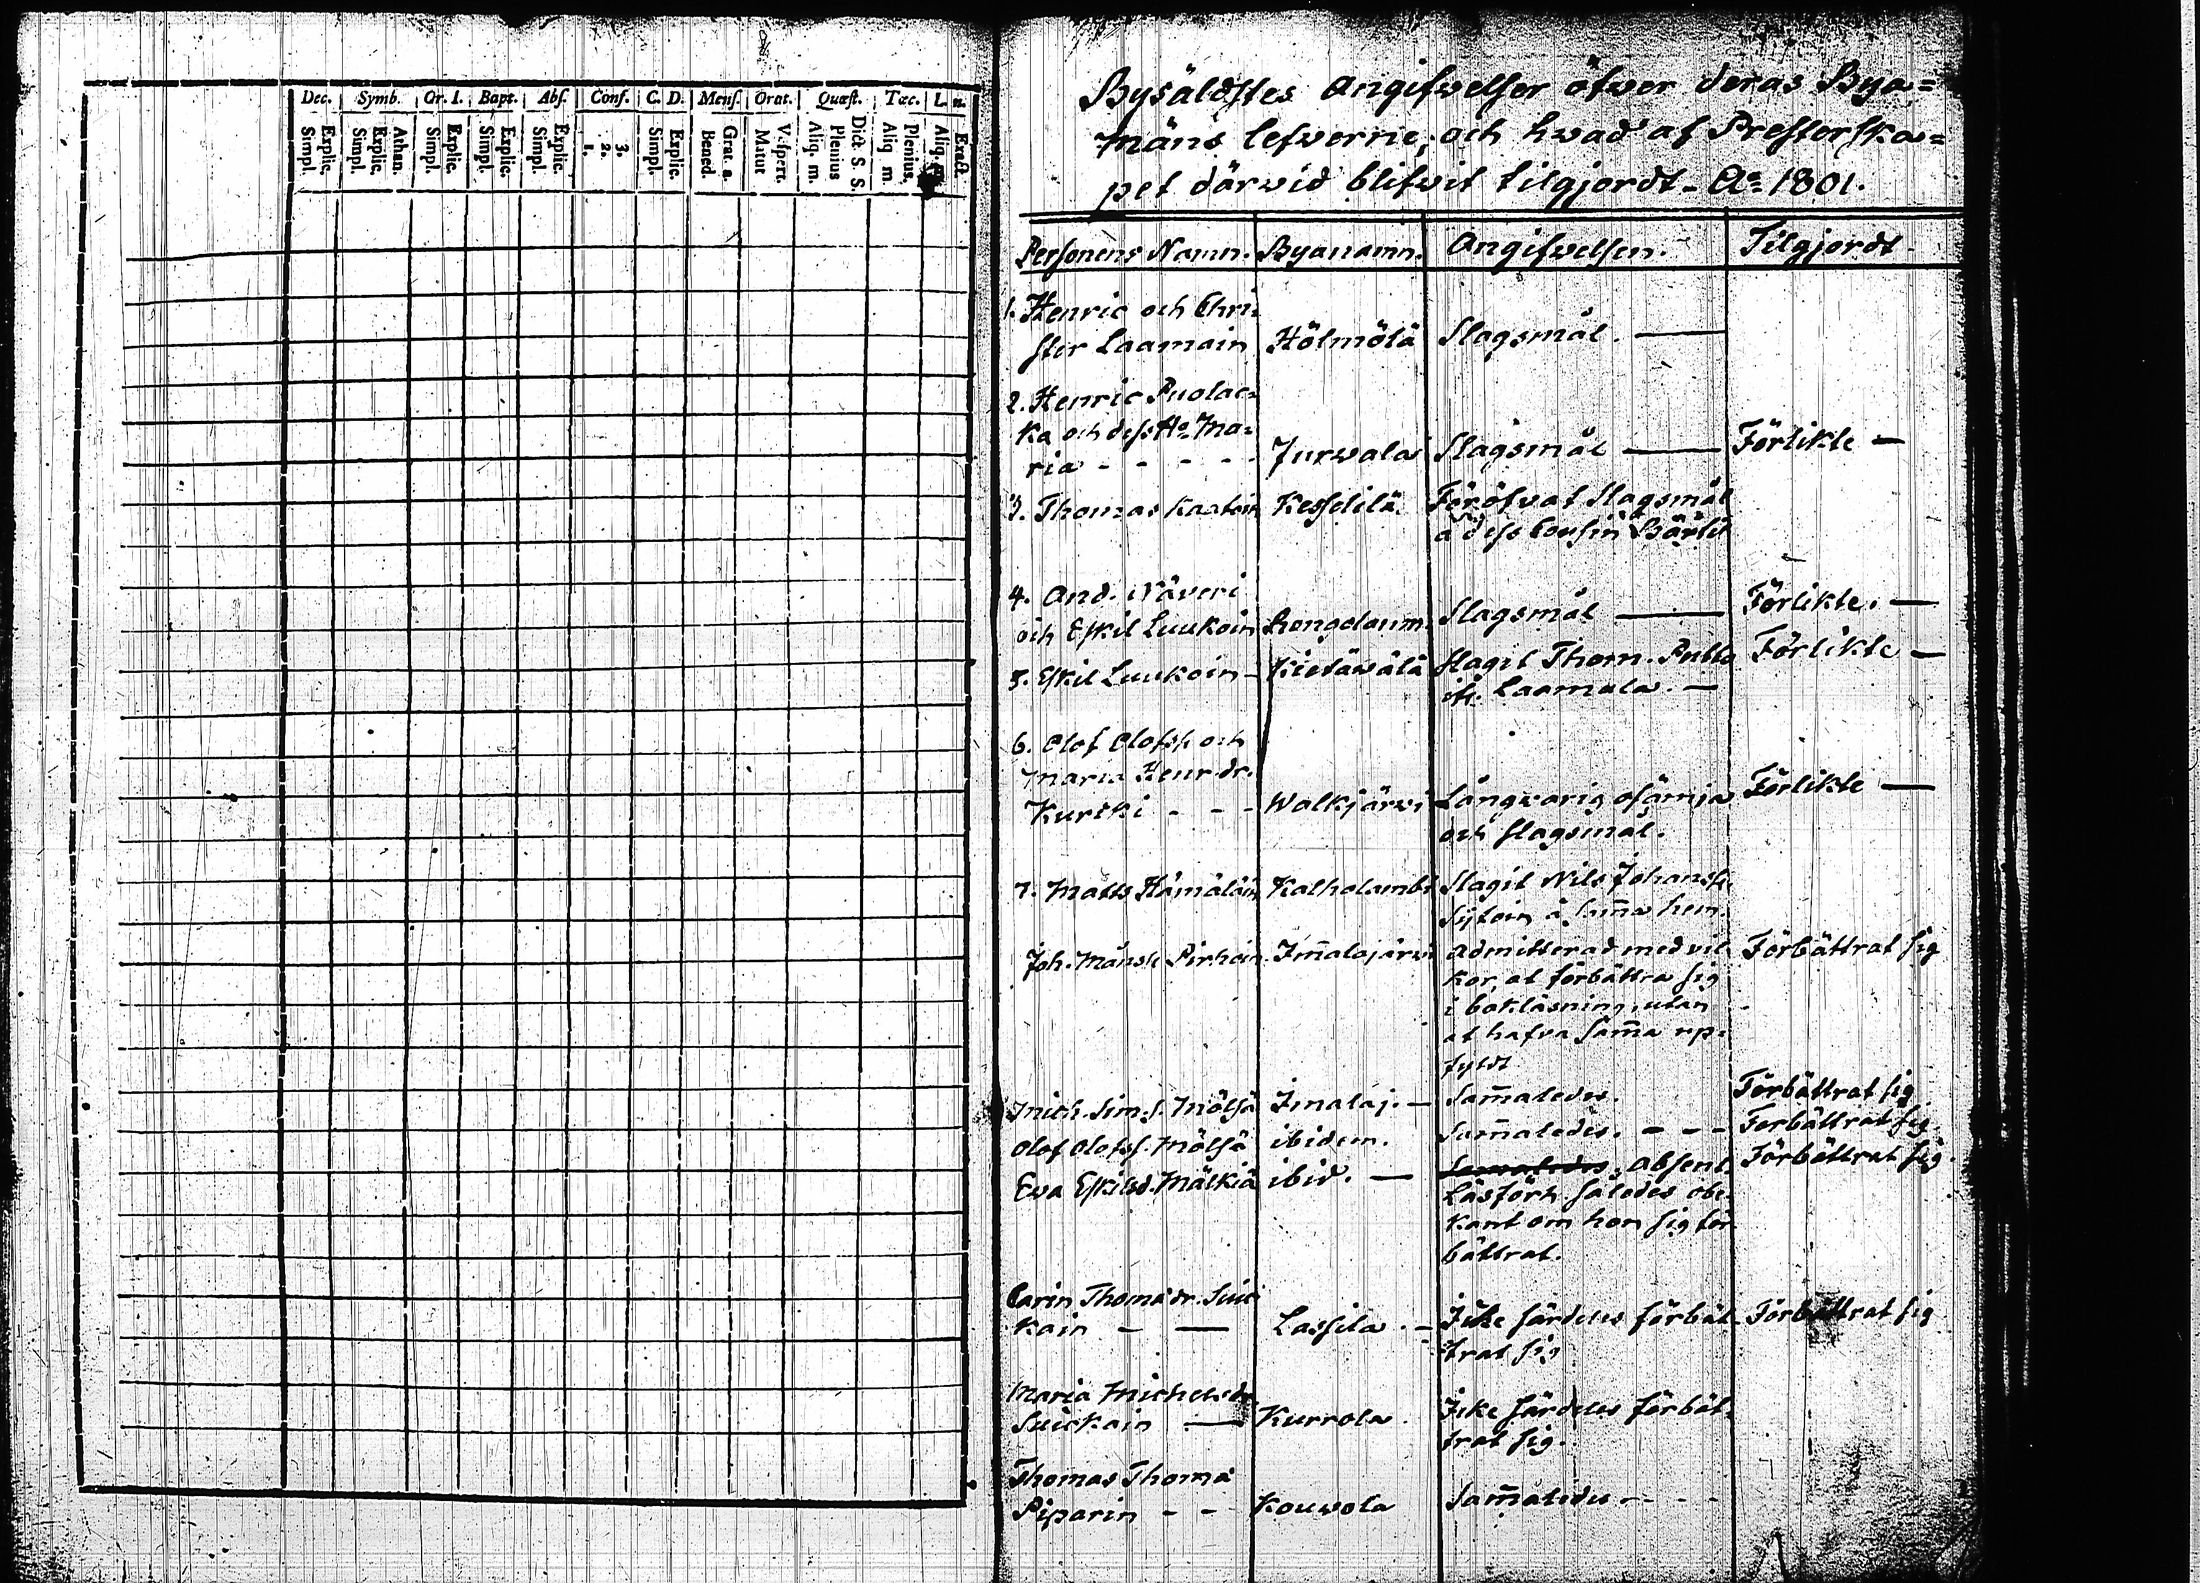 Dec. Symb. Or. I. Bapt. Abs. Conf. C. D. Mens. Orat. Quæst. Tæc. L. n.
Explic. Simpl. Athan. Explic. Simpl. Explic. Simpl. Explic. Simpl. Explic. Simpl. 3. 2. 1. Explic. Simpl. Grat. a. Bened. Vespert. Matut Dict. S. S. Plenius Aliq. m. Plenius, Aliq m. Exact Aliq. m.
Bysäldstes Angifwelser öfwer deras Bya=
mäns lefwerne, och hwad af Presterska=
pet därwid blifwit tilgjordt - Ao 1801.
Personens Namn. Byanamn. Angifwelsen. Tilgjordt.
1. Henric och Chri=
ster Laamain Hölmölä Slagsmål. —
2. Henric Puolac=
ka och dess Ho Ma=
ria - - - - - Jurwala Slagsmål — Förlikte —
3. Thomas Kaatoin Kesselilä Föröfvat Slagsmål
å dess Cousin Bärtil
4. And. Näveri
och Eskil Luukoin Slagsmål — Förlikte. —
5. Eskil Luukoin - Kietäwälä Slagit Thom.
Laamala. — Förlikte —
6. Olof Olofsn och
Maria Henr. dr.
Kurtki - - - Walkjärwi Långwarig osämja Förlikte —
och slagsmål.
7. Matts Hämäläin Kalholambi Slagit Nils Johanss.
Sijtoin å sam̅a hem.
Joh. Månsn Pirhoin Im̅alajärwi Admitterad med vil=
kor, at förbättra sig
i bokläsning, utan
at hafva sam̅a up=
fyldt Förbättrat sig
Mich. Sim. s. Mölsä Imalaj. — Sam̅aledes. Förbättrat sig
Olof Olofss. Mölsä ibidem. Sam̅aledes. - - - Förbättrat sig.
Eva Eskilsd. Mälkiä ibid. — Samaledes. Absent. Förbättrat sig.
Läsförh. således obe=
kant om hon sig för
bättrat.
Carin Thomædr. Suic
kain - — Lassila. - Icke särdeles förbät=
trat sig Förbättrat sig
Maria Michelsdr
Suickain — Kurrola. Icke särdeles förbät=
trat sig.
Thomas Thomæ
Piparin - - Kouwola Sam̅aledes - - - -